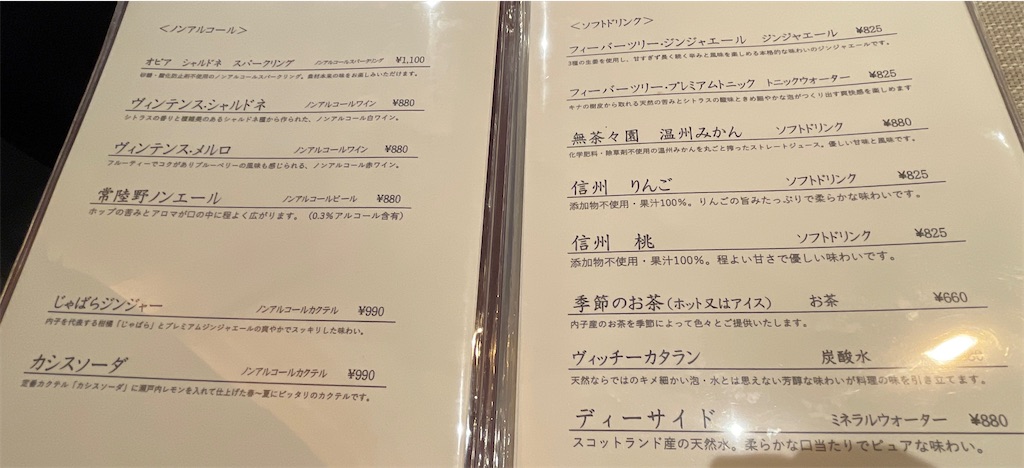 ＜ノンアルコール＞
オピア シャルドネ スパークリング ノンアルコールスパークリング ¥1,100
砂糖・酸化防止剤不使用のノンアルコールスパークリング。素材本来の味をお楽しみいただけます。
ヴィンテンス・シャルドネ ノンアルコールワイン ¥880
シトラスの香りと複雑美のあるシャルドネ種から作られた、ノンアルコール白ワイン。
ヴィンテンス・メルロ ノンアルコールワイン ¥880
フルーティーでコクがありブルーベリーの風味も感じられる、ノンアルコール赤ワイン。
常陸野ノンエール ノンアルコールビール ¥880
ホップの苦みとアロマが口の中に程よく広がります。（0.3%アルコール含有）
じゃばらジンジャー ノンアルコールカクテル ¥990
内子を代表する柑橘「じゃばら」とプレミアムジンジャエールの爽やかでスッキリした味わい。
カシスソーダ ノンアルコールカクテル ¥990
定番カクテル「カシスソーダ」に瀬戸内レモンを入れて仕上げた春〜夏にピッタリのカクテルです。
＜ソフトドリンク＞
フィーバーツリー・ジンジャエール ジンジャエール ¥825
3種の生姜を使用し、甘すぎず長く続く辛みと風味を楽しめる本格的な味わいのジンジャエールです。
フィーバーツリー・プレミアムトニック トニックウォーター ¥825
キナの樹皮から取れる天然の苦みとシトラスの酸味ときめ細やかな泡がつくり出す爽快感を楽しめます
無茶々園 温州みかん ソフトドリンク ¥880
化学肥料・除草剤不使用の温州みかんを丸ごと搾ったストレートジュース。優しい甘味と風味です。
信州 りんご ソフトドリンク ¥825
添加物不使用・果汁100%。りんごの旨みたっぷりで柔らかな味わいです。
信州 桃 ソフトドリンク ¥825
添加物不使用・果汁100%。程よい甘さで優しい味わいです。
季節のお茶（ホット又はアイス） お茶 ¥660
内子産のお茶を季節によって色々とご提供いたします。
ヴィッチーカタラン 炭酸水
天然ならではのキメ細かい泡・水とは思えない芳醇な味わいが料理の味を引き立てます。
ディーサイド ミネラルウォーター ¥880
スコットランド産の天然水。柔らかな口当たりでピュアな味わい。